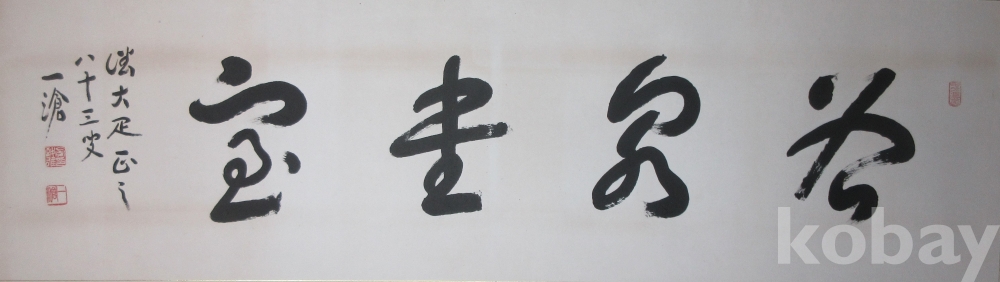 谷泉書室
濤大疋正之
八十三叟
一滄
kobay